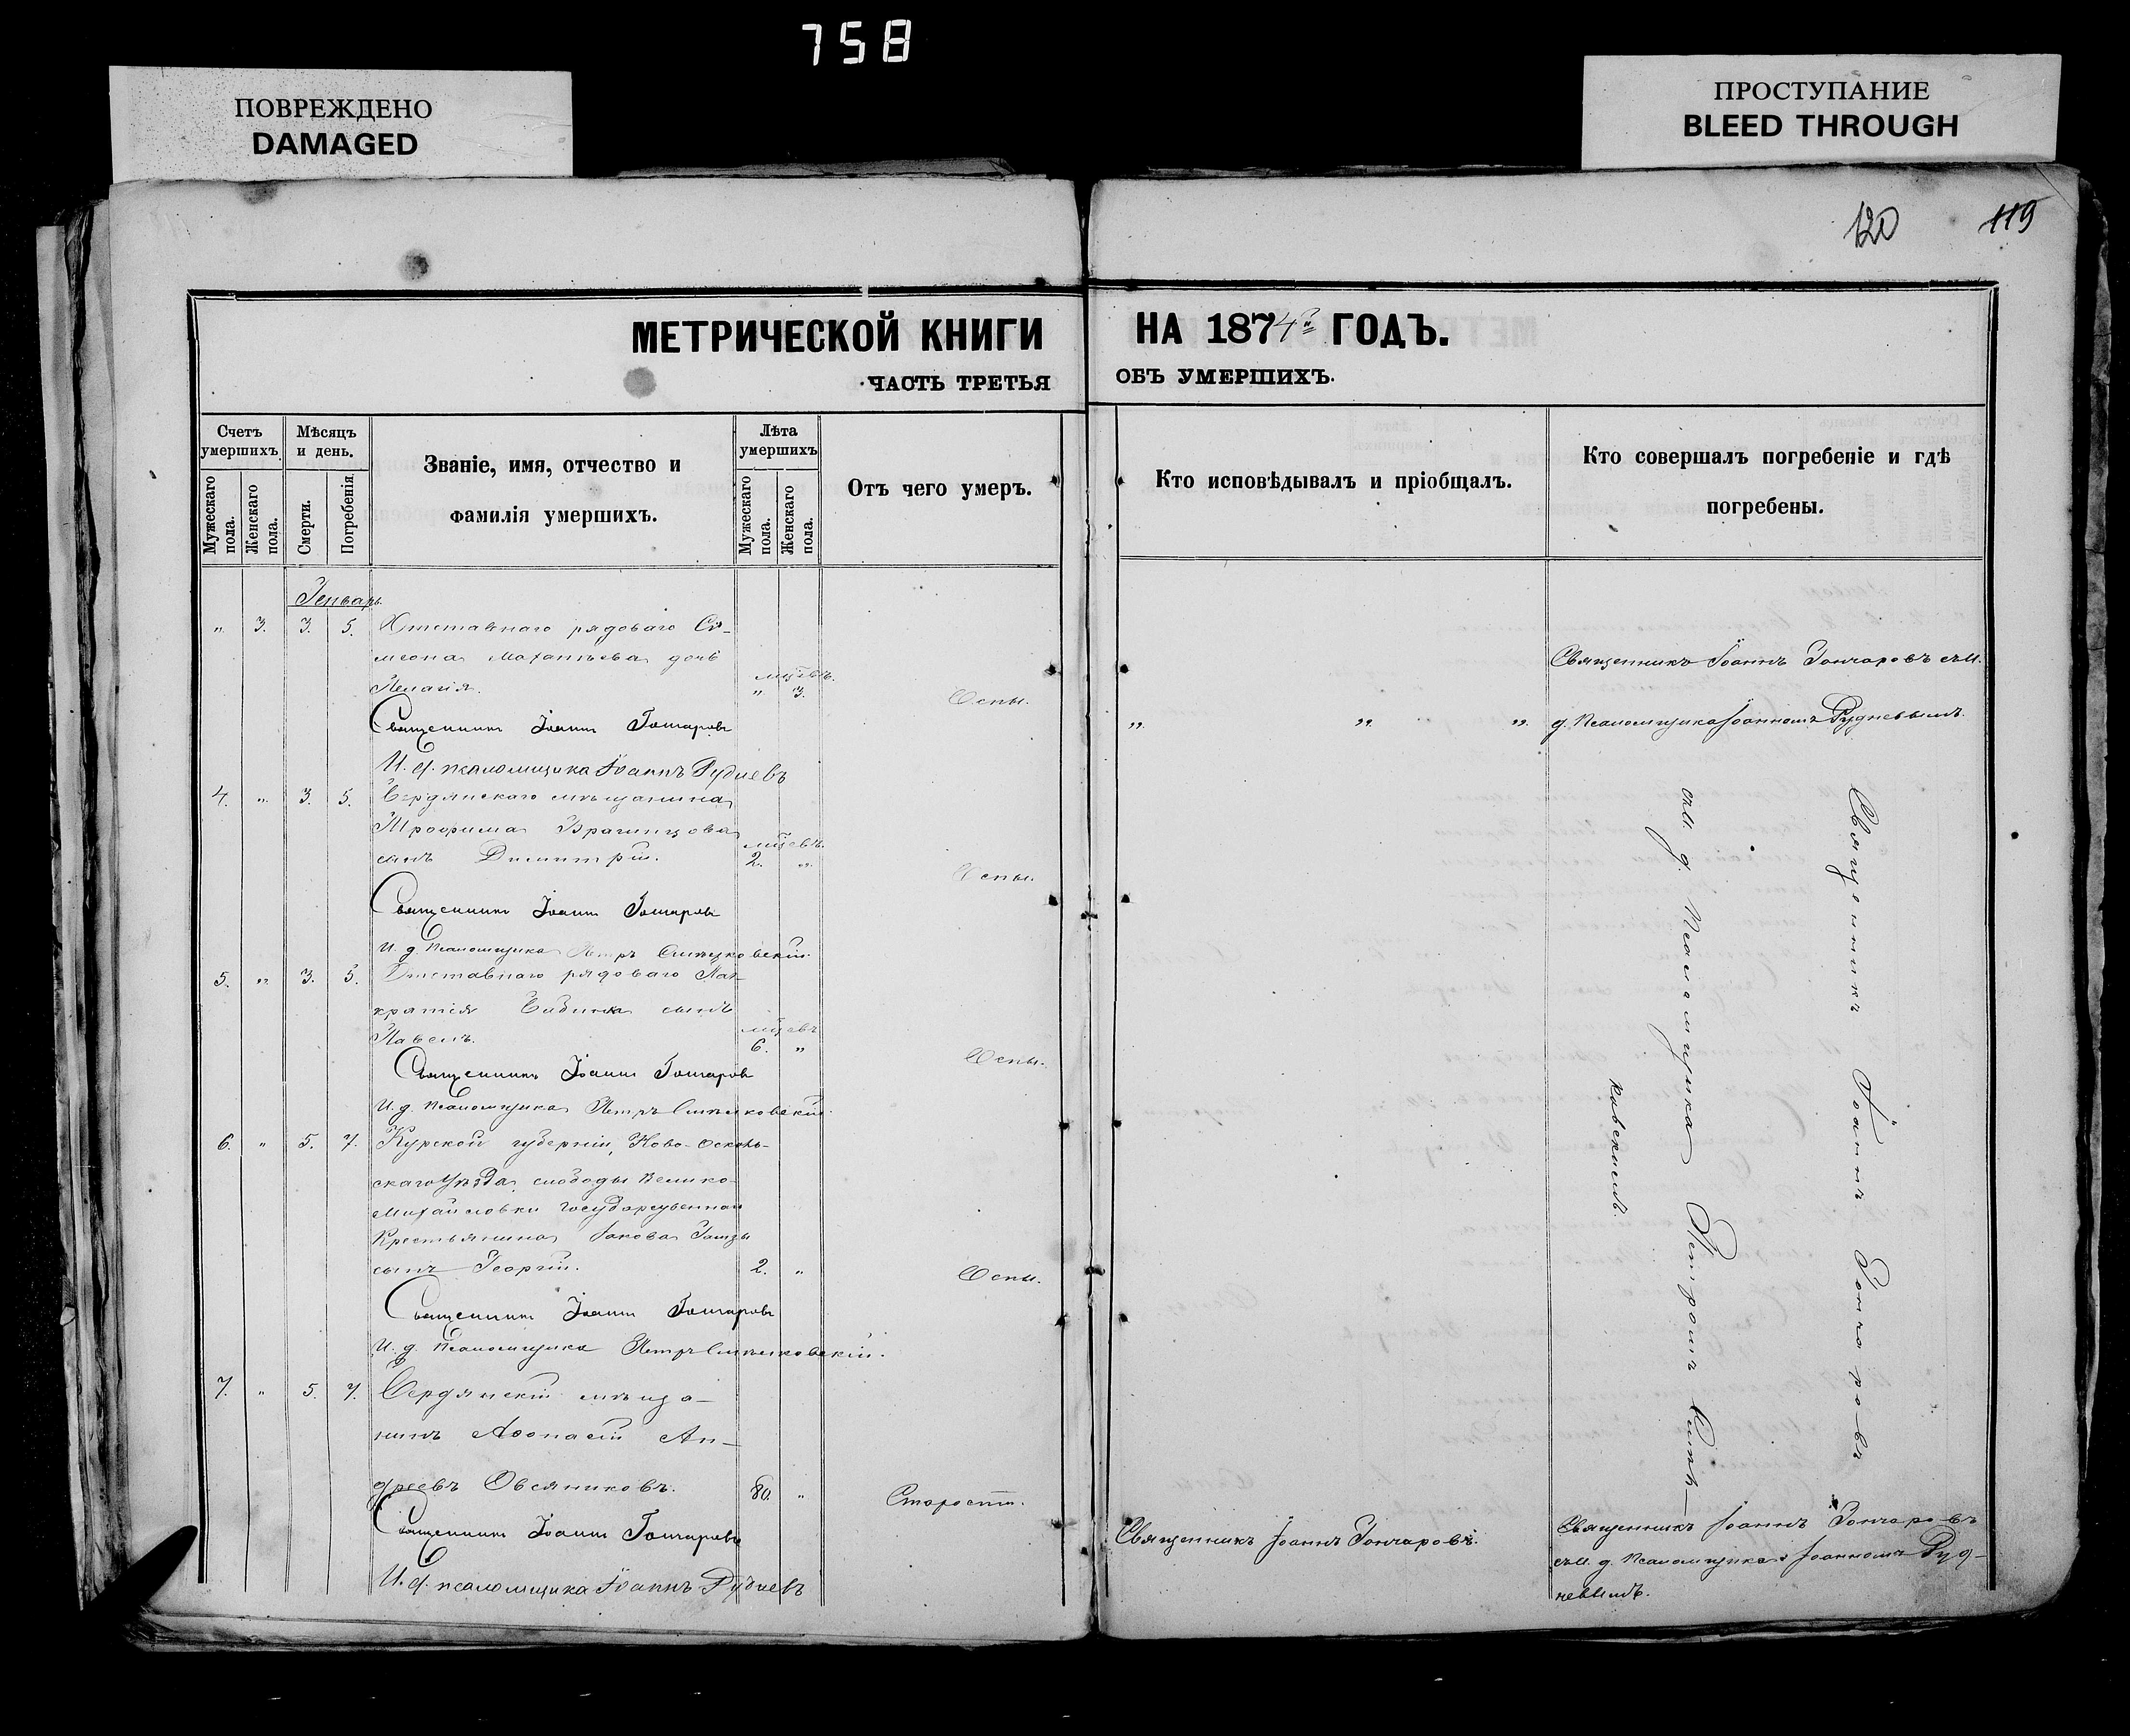 758
ПОВРЕЖДЕНО
DAMAGED
ПРОСТУПАНИЕ
BLEED THROUGH
120 119
МЕТРИЧЕСКОЙ КНИГИ
НА 1874й ГОДЪ.
ЧАСТЬ ТРЕТЬЯ
ОБЪ УМЕРШИХЪ.
Счетъ умершихъ.
Мужескаго пола.
Женскаго пола.
Мѣсяцъ и день.
Смерти.
Погребенія.
Званіе, имя, отчество и
фамилія умершихъ.
Лѣта умершихъ
Мужескаго пола.
Женскаго пола.
Отъ чего умеръ.
Кто исповѣдывалъ и пріобщалъ.
Кто совершалъ погребеніе и гдѣ
погребены.
Генварь.
„ 3. 3. 5. Отставнаго рядоваго Си-
меона дочь
Пелагія. мцевъ. „ 3. Оспы.
Священникъ Іоаннъ Гончаровъ
И. д. псаломщика Іоаннъ Рудневъ
Священникъ Іоаннъ Гончаровъ съ И.
„ „ „ д. Псаломщика Іоанномъ Рудневымъ.
4. „ 3. 5. Бердянскаго мѣщанина
Трофима
сынъ Димитрій. мцевъ. 2. „ Оспы.
Священникъ Іоаннъ Гончаровъ
И. д. Псаломщика Петръ
5. „ 3. 5. Отставнаго рядоваго Пан-
кратія сынъ
Павелъ. мцевъ 6. „ Оспы.
Священникъ Іоаннъ Гончаровъ
И. д. Псаломщика Петръ
6. „ 5. 7. Курской губерніи, Ново-Осколь-
скаго Уѣзда, слободы Велико-
Михайловки Государственнаго
Крестьянина Іакова
сынъ Георгій. 2. „ Оспы.
Священникъ Іоаннъ Гончаровъ
И. д. Псаломщика Петръ
Священникъ Іоаннъ Гончаровъ
съ И. д. Псаломщика Петромъ
ковскимъ.
7. „ 5. 7. Бердянскій мѣща-
нинъ Аѳонасій Ан-
дреевъ Овсяниковъ. 80. „ Старости.
Священникъ Іоаннъ Гончаровъ
И. д. псаломщика Іоаннъ Рудневъ
Священникъ Іоаннъ Гончаровъ.
Священникъ Іоаннъ Гончаровъ
съ И. д. Псаломщика Іоанномъ Руд-
невымъ.